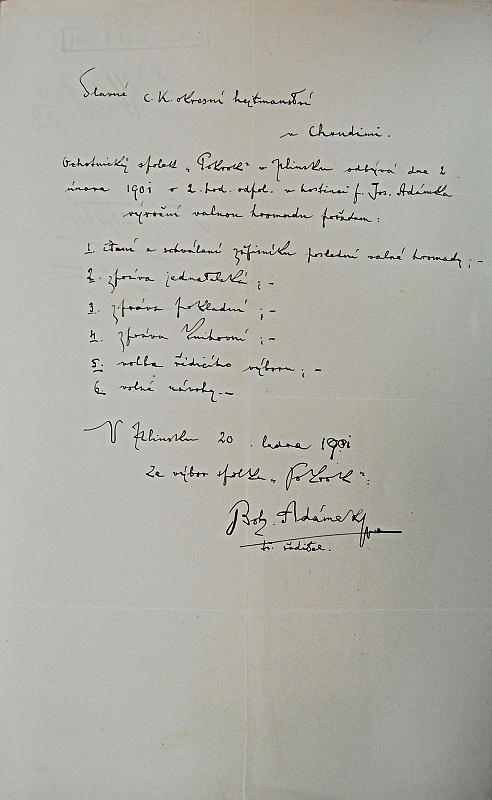 Slavné c. K. okresní hejtmanství
v Chrudimi.
Ochotnický spolek „Pokrok“ v Hlinsku odbývá dne 2.
února 1901 o 2. hod. odpol. v hostinci p. Jos. Adámka
výroční valnou hromadu pořadem:
1. čtení a schválení zápisníku poslední valné hromady; –
2. zpráva jednatelská; –
3. zpráva pokladní; –
4. zpráva knihovní; –
5. volba řídícího výboru; –
6. volné návrhy. –
V Hlinsku 20. ledna 1901
Za výbor spolku „Pokrok“:
Boh. Adámek
ředitel.